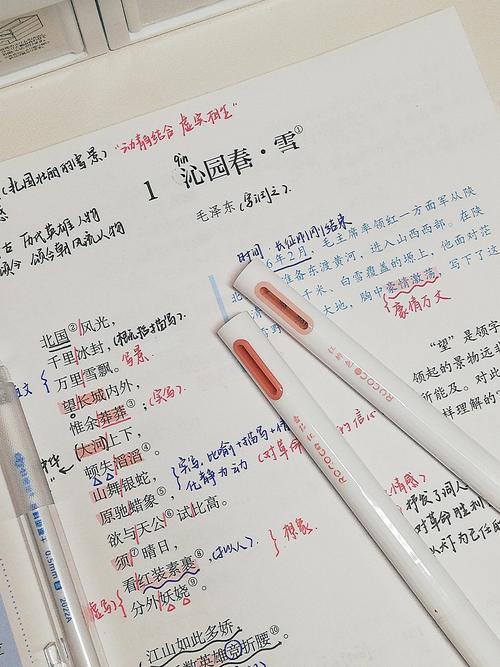 "动静结合 虚实相生"
(北国壮丽的雪景)
1 qìn 沁园春·雪①
毛泽东(字润之).
历代英雄人物
颂今朝风流人物
时间:长征刚刚结束
6年2月,毛主席率领红一方面军从陕
准备东渡黄河,进入山西西部。在陕
千米、白雪覆盖的塬上,他面对茫
大地,胸中豪情激荡,写下了这
豪情万丈
北国②风光,
千里冰封,
万里雪飘。写景
望长城内外,
惟余莽莽③;(实写)
大河上下,
顿失滔滔④。
山舞银蛇,
原驰蜡象⑤,
实写,比喻+
化静为动
(对革命
的信心
欲与天公⑥试比高。
须⑦晴日,
看红装素裹⑧,(拟人)
想象
虚写
分外妖娆⑨。
江山如此多娇,
数英雄竞折腰⑩。
"望"是领字
领起的景物远非
所能及。对此
样理解的
情感)
抒发了润人
对革命胜利
以天下为己任的
ROCOCO
ROCOCO
0.5mm
2022A